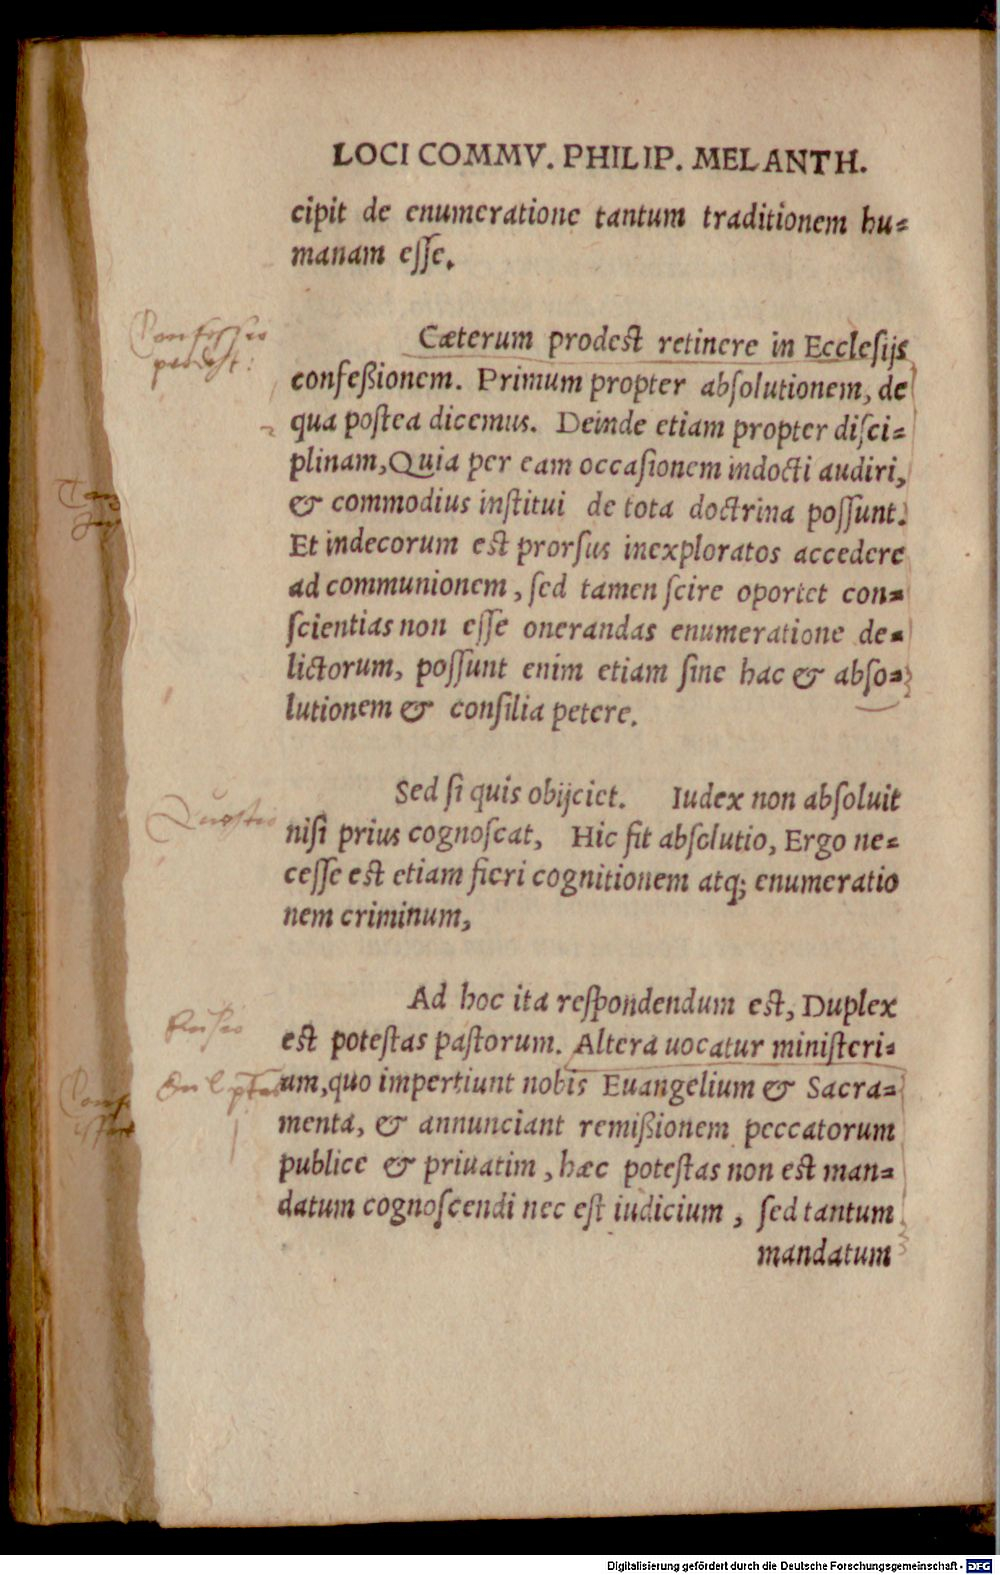 LOCI COMMV. PHILIP. MELANTH.
cipit de enumeratione tantum traditionem hu⸗
manam eſſe.
Confessio
prodest:
Cæterum prodest retinere in Ecclesijs
confeßionem. Primum propter abſolutionem, de
qua poſtea dicemus. Deinde etiam propter diſci⸗
plinam, Quia per eam occaſionem indocti audiri,
& commodius inſtitui de tota doctrina poſſunt.
Et indecorum est prorſus inexploratos accedere
ad communionem, ſed tamen ſcire oportet con⸗
ſcientias non eſſe onerandas enumeratione de⸗
lictorum, poſſunt enim etiam ſine hac & abſo⸗
lutionem & conſilia petere.
Quæstio
Sed ſi quis obijciet. Iudex non abſoluit
niſi prius cognoſcat, Hic fit abſolutio, Ergo ne⸗
ceſſe est etiam fieri cognitionem atq; enumeratio
nem criminum,
Ad hoc ita reſpondendum est, Duplex
est poteſtas paſtorum. Altera uocatur miniſteri⸗
um, quo impertiunt nobis Euangelium & Sacra⸗
menta, & annunciant remißionem peccatorum
publice & priuatim, hæc poteſtas non est man⸗
datum cognoſcendi nec eſt iudicium, ſed tantum
mandatum
Digitalisierung gefördert durch die Deutsche Forschungsgemeinschaft - DFG